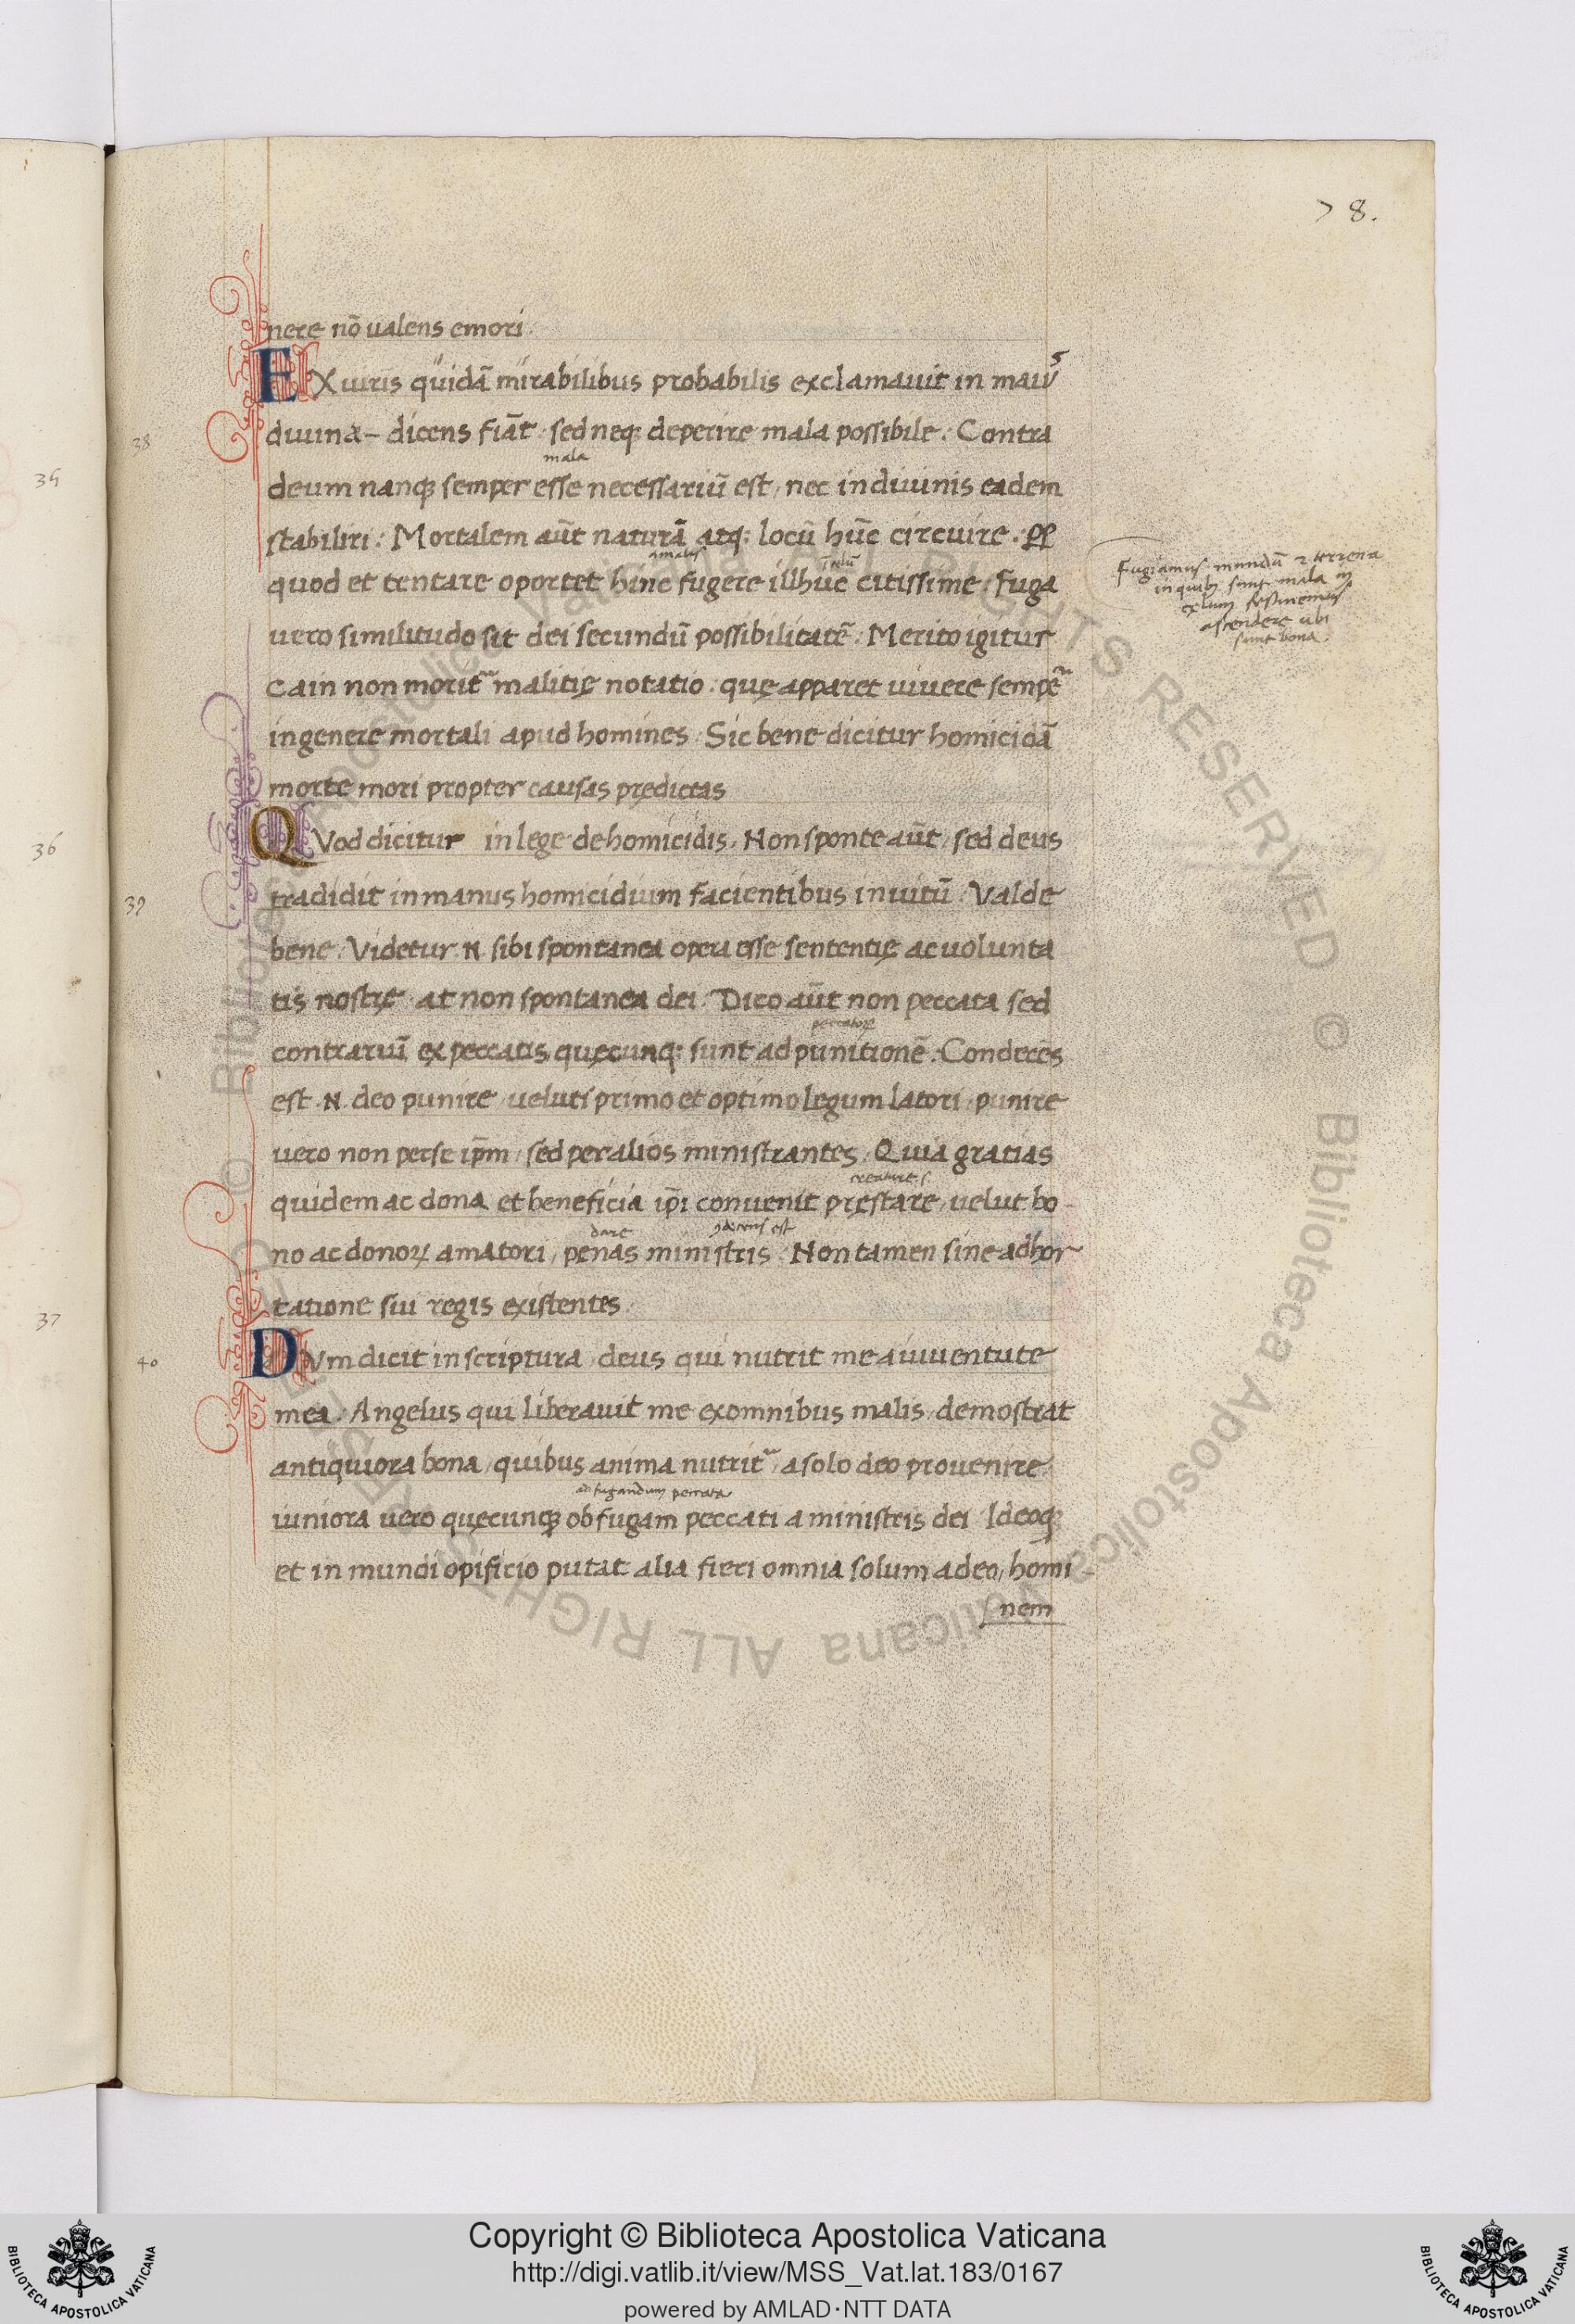 78.
nere nō ualens emori.
EX uiris quidā mirabilibus probabilis exclamauit in
diuina dicens fiāt. sed neq; deperire mala possibile. Contra
mala
deum nanq; semper esse necessariū est, nec in diuinis eadem
stabiliri. Mortalem aūt naturā atq; locū hūc circuire.
amalis
quod et tentare oportet hinc fugere illhuc citissime. fuga
Fugiamus mundū terrena
in quib; sunt mala
celum festinemus
ascendere ubi
sunt bona.
uero similitudo sit dei secundū possibilitatē. Merito igitur
38
35
Cain non morit᷑ malitię notatio. quę apparet uiuere sempe᷑
in genere mortali apud homines. Sic bene dicitur homicidā
morte mori propter causas prędictas
QVod dicitur in lege de homicidis. Non sponte aūt, sed deus
36
39
tradidit in manus homicidium facientibus inuitū. Valde
bene. Videtur .N. sibi spontanea opera esse sententię ac uolunta
tis nostrę. at non spontanea dei. Dico aūt non peccata sed
peccatoꝝ
contrariū ex peccatis, quęcunq; sunt ad punitionē. Condecēs
est .N. deo punire, ueluti primo et optimo legum latori, punire
uero non per se ip̄m, sed per alios ministrantes. Quia gratias
creaturis
quidem ac dona et beneficia ip̄i conuenit pręstare, uelut bo
dare ꝯdecens est
no ac donoꝝ amatori, penas ministris. Non tamen sine adhor
tatione sui regis existentes.
37
40
DVm dicit in scriptura, deus qui nutrit me a iuuentute
mea. Angelus qui liberauit me ex omnibus malis, demostrat
antiquiora bona, quibus anima nutrit᷑, a solo deo prouenire
ad fugandum peccata
iuniora uero quęcunq; ob fugam peccati a ministris dei. Ideoq;
et in mundi opificio putat alia fieri omnia solum a deo, homi
nem
Copyright © Biblioteca Apostolica Vaticana
http://digi.vatlib.it/view/MSS_Vat.lat.183/0167
powered by AMLAD·NTT DATA
BIBLIOTECA APOSTOLICA VATICANA
BIBLIOTECA APOSTOLICA VATICANA